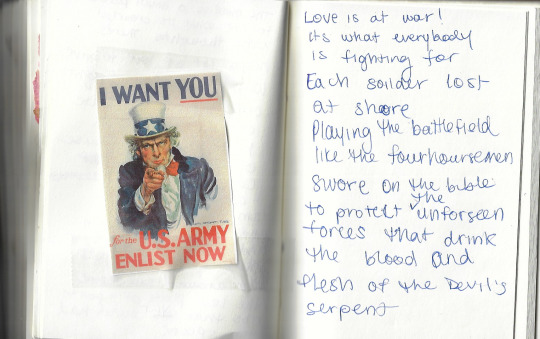 I WANT YOU
for the U.S. ARMY
ENLIST NOW
Love is at war!
its what everybody
is fighting for
Each soilder lost
at shore
Playing the battlefield
like the fourhoursemen
swore on the bible
to protect the unforseen
forces that drink
the blood and
flesh of the Devil's
serpent